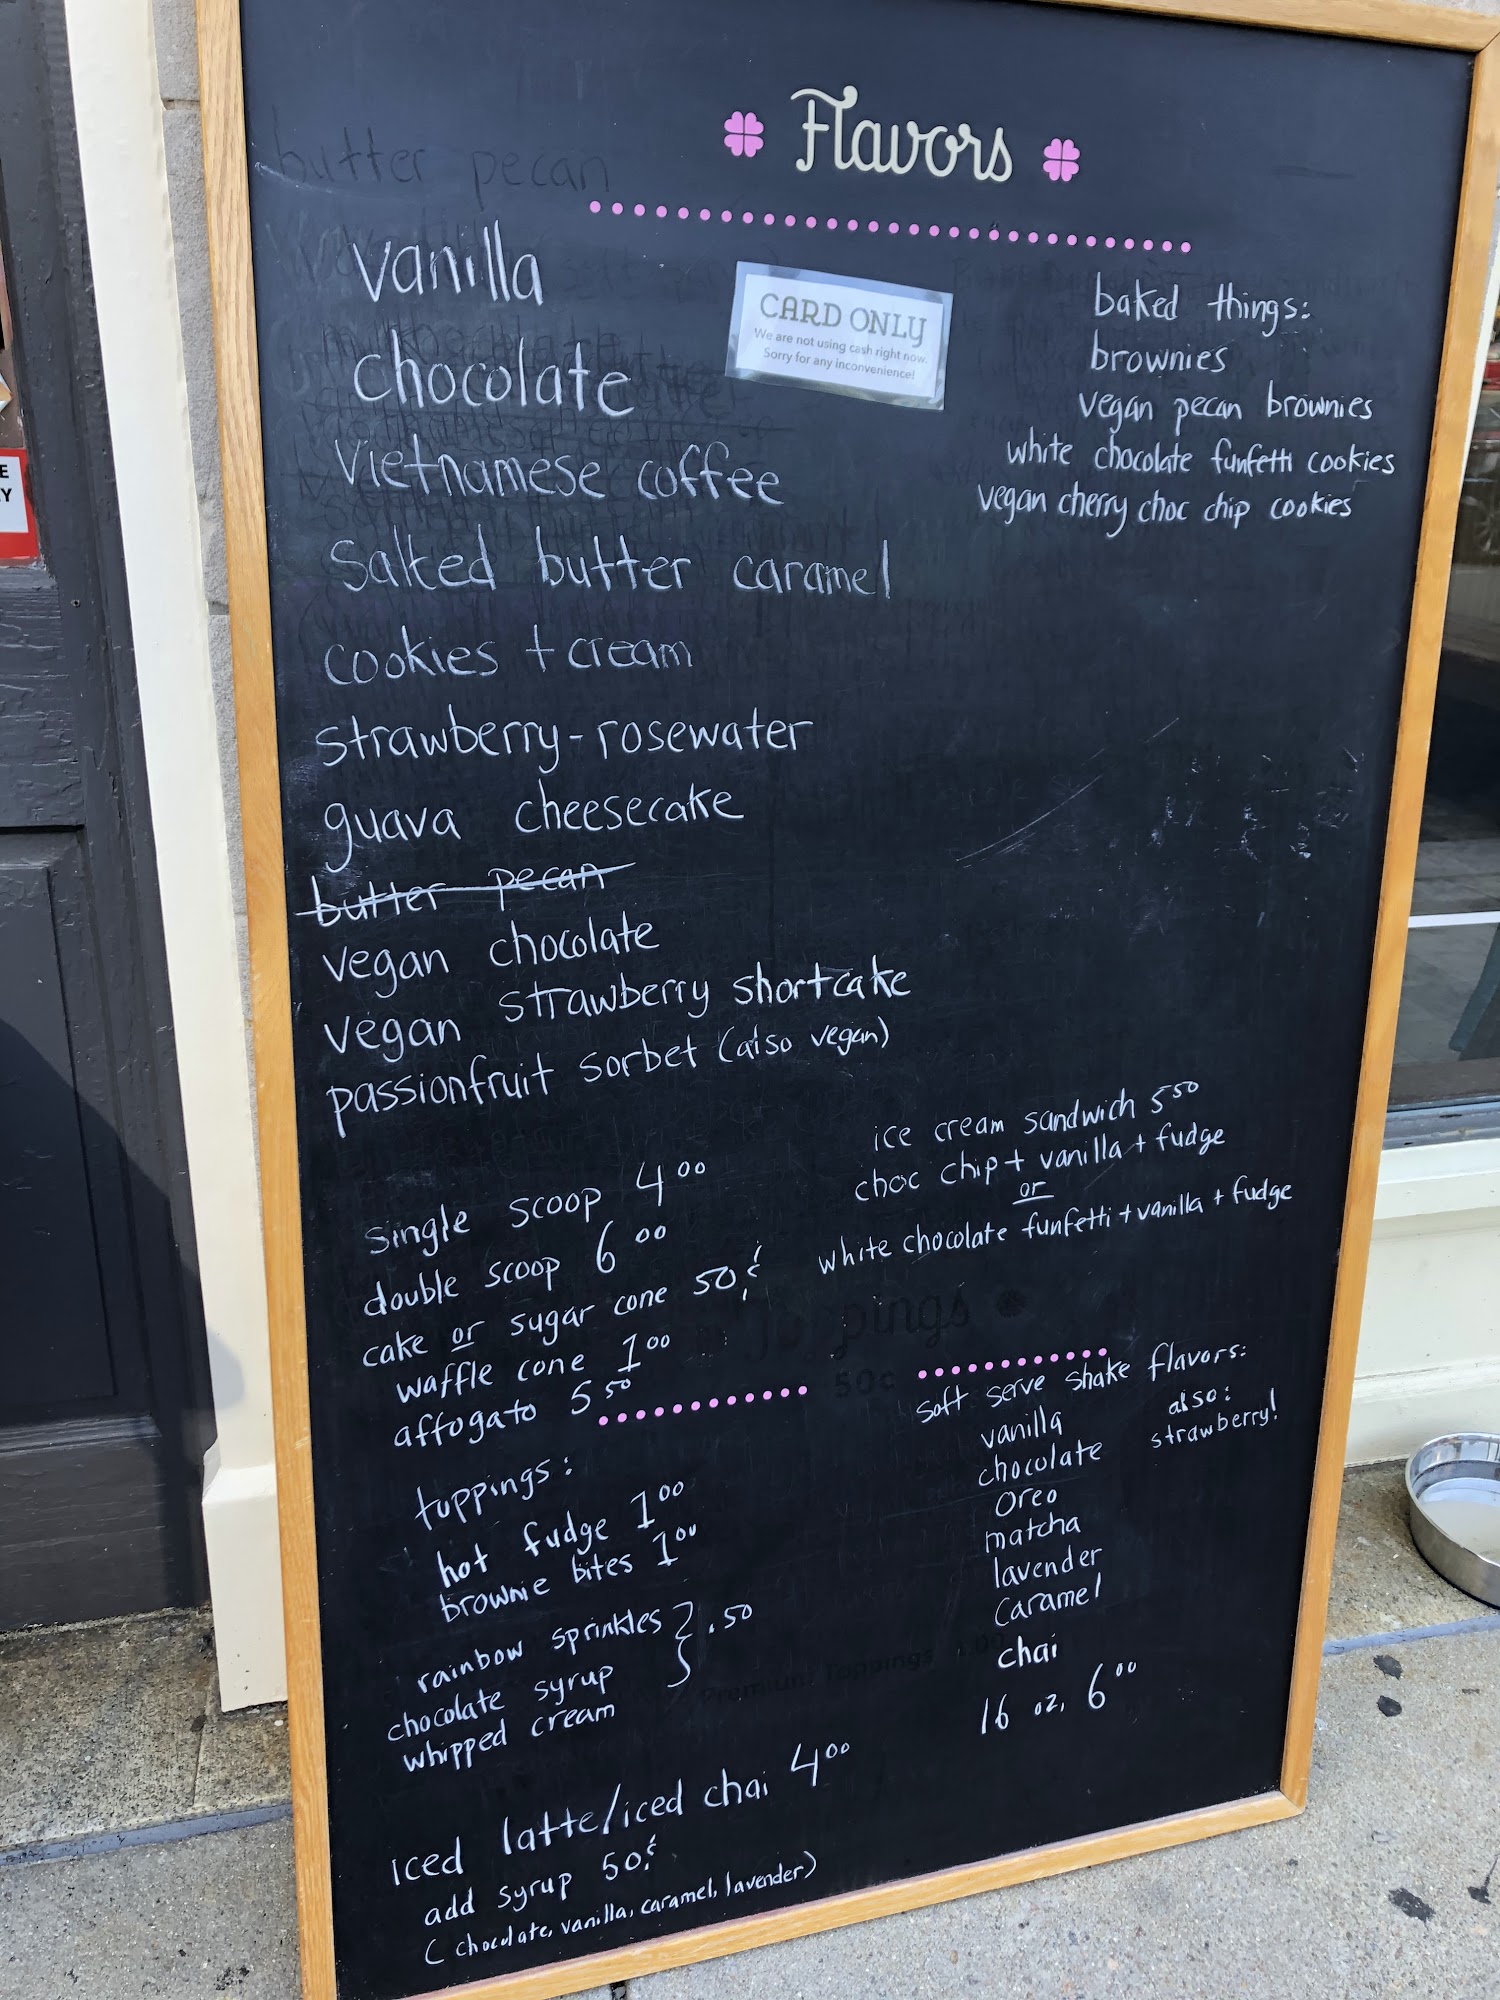 Flavors
butter pecan
vanilla
chocolate
vietnamese coffee
salted butter caramel
cookies + cream
strawberry-rosewater
guava cheesecake
butter pecan
vegan chocolate
vegan strawberry shortcake
passionfruit sorbet (also vegan)
CARD ONLY
We are not using cash right now.
Sorry for any inconvenience!
baked things:
brownies
vegan pecan brownies
white chocolate funfetti cookies
vegan cherry choc chip cookies
single scoop 4.00
double scoop 6.00
cake or sugar cone 50¢
waffle cone 1.00
affogato 5.50
ice cream sandwich 5.50
choc chip + vanilla + fudge
or
white chocolate funfetti + vanilla + fudge
Toppings
50¢
toppings:
hot fudge 1.00
brownie bites 1.00
rainbow sprinkles } .50
chocolate syrup
whipped cream
Premium Toppings
soft serve shake flavors:
vanilla
chocolate
oreo
matcha
lavender
caramel
chai
also:
strawberry!
16 oz. 6.00
iced latte/iced chai 4.00
add syrup 50¢
(chocolate, vanilla, caramel, lavender)